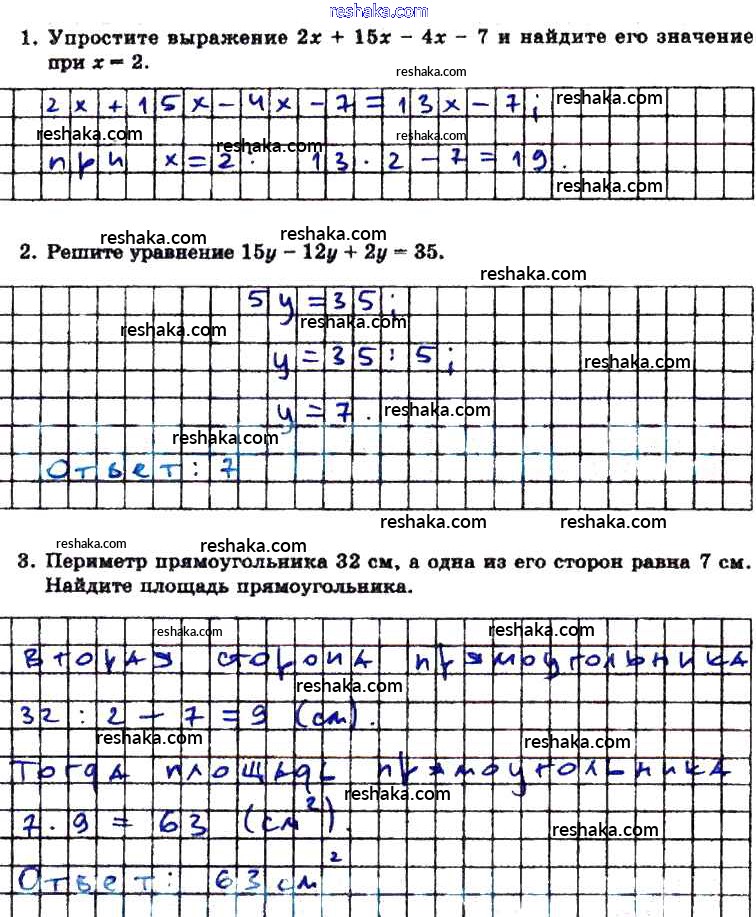 gdz.com
reshaka.com
1. Упростите выражение 2x + 15x − 4x − 7 и найдите его значение
при x = 2.
reshaka.com
2x+15x−4x−7=13x−7;
reshaka.com
reshaka.com
reshaka.com
при x=2: 13·2−7=19.
reshaka.com
reshaka.com
reshaka.com
2. Решите уравнение 15y − 12y + 2y = 35.
reshaka.com
5y=35;
reshaka.com
reshaka.com
y=35:5;
reshaka.com
y=7.
reshaka.com
reshaka.com
Ответ: 7
reshaka.com
reshaka.com
reshaka.com
3. Периметр прямоугольника 32 см, а одна из его сторон равна 7 см.
Найдите площадь прямоугольника.
reshaka.com
reshaka.com
Вторая сторона прямоугольника
reshaka.com
32:2−7=9 (см).
reshaka.com
reshaka.com
Тогда площадь прямоугольника
reshaka.com
7·9=63 (см²).
reshaka.com
Ответ: 63 см²